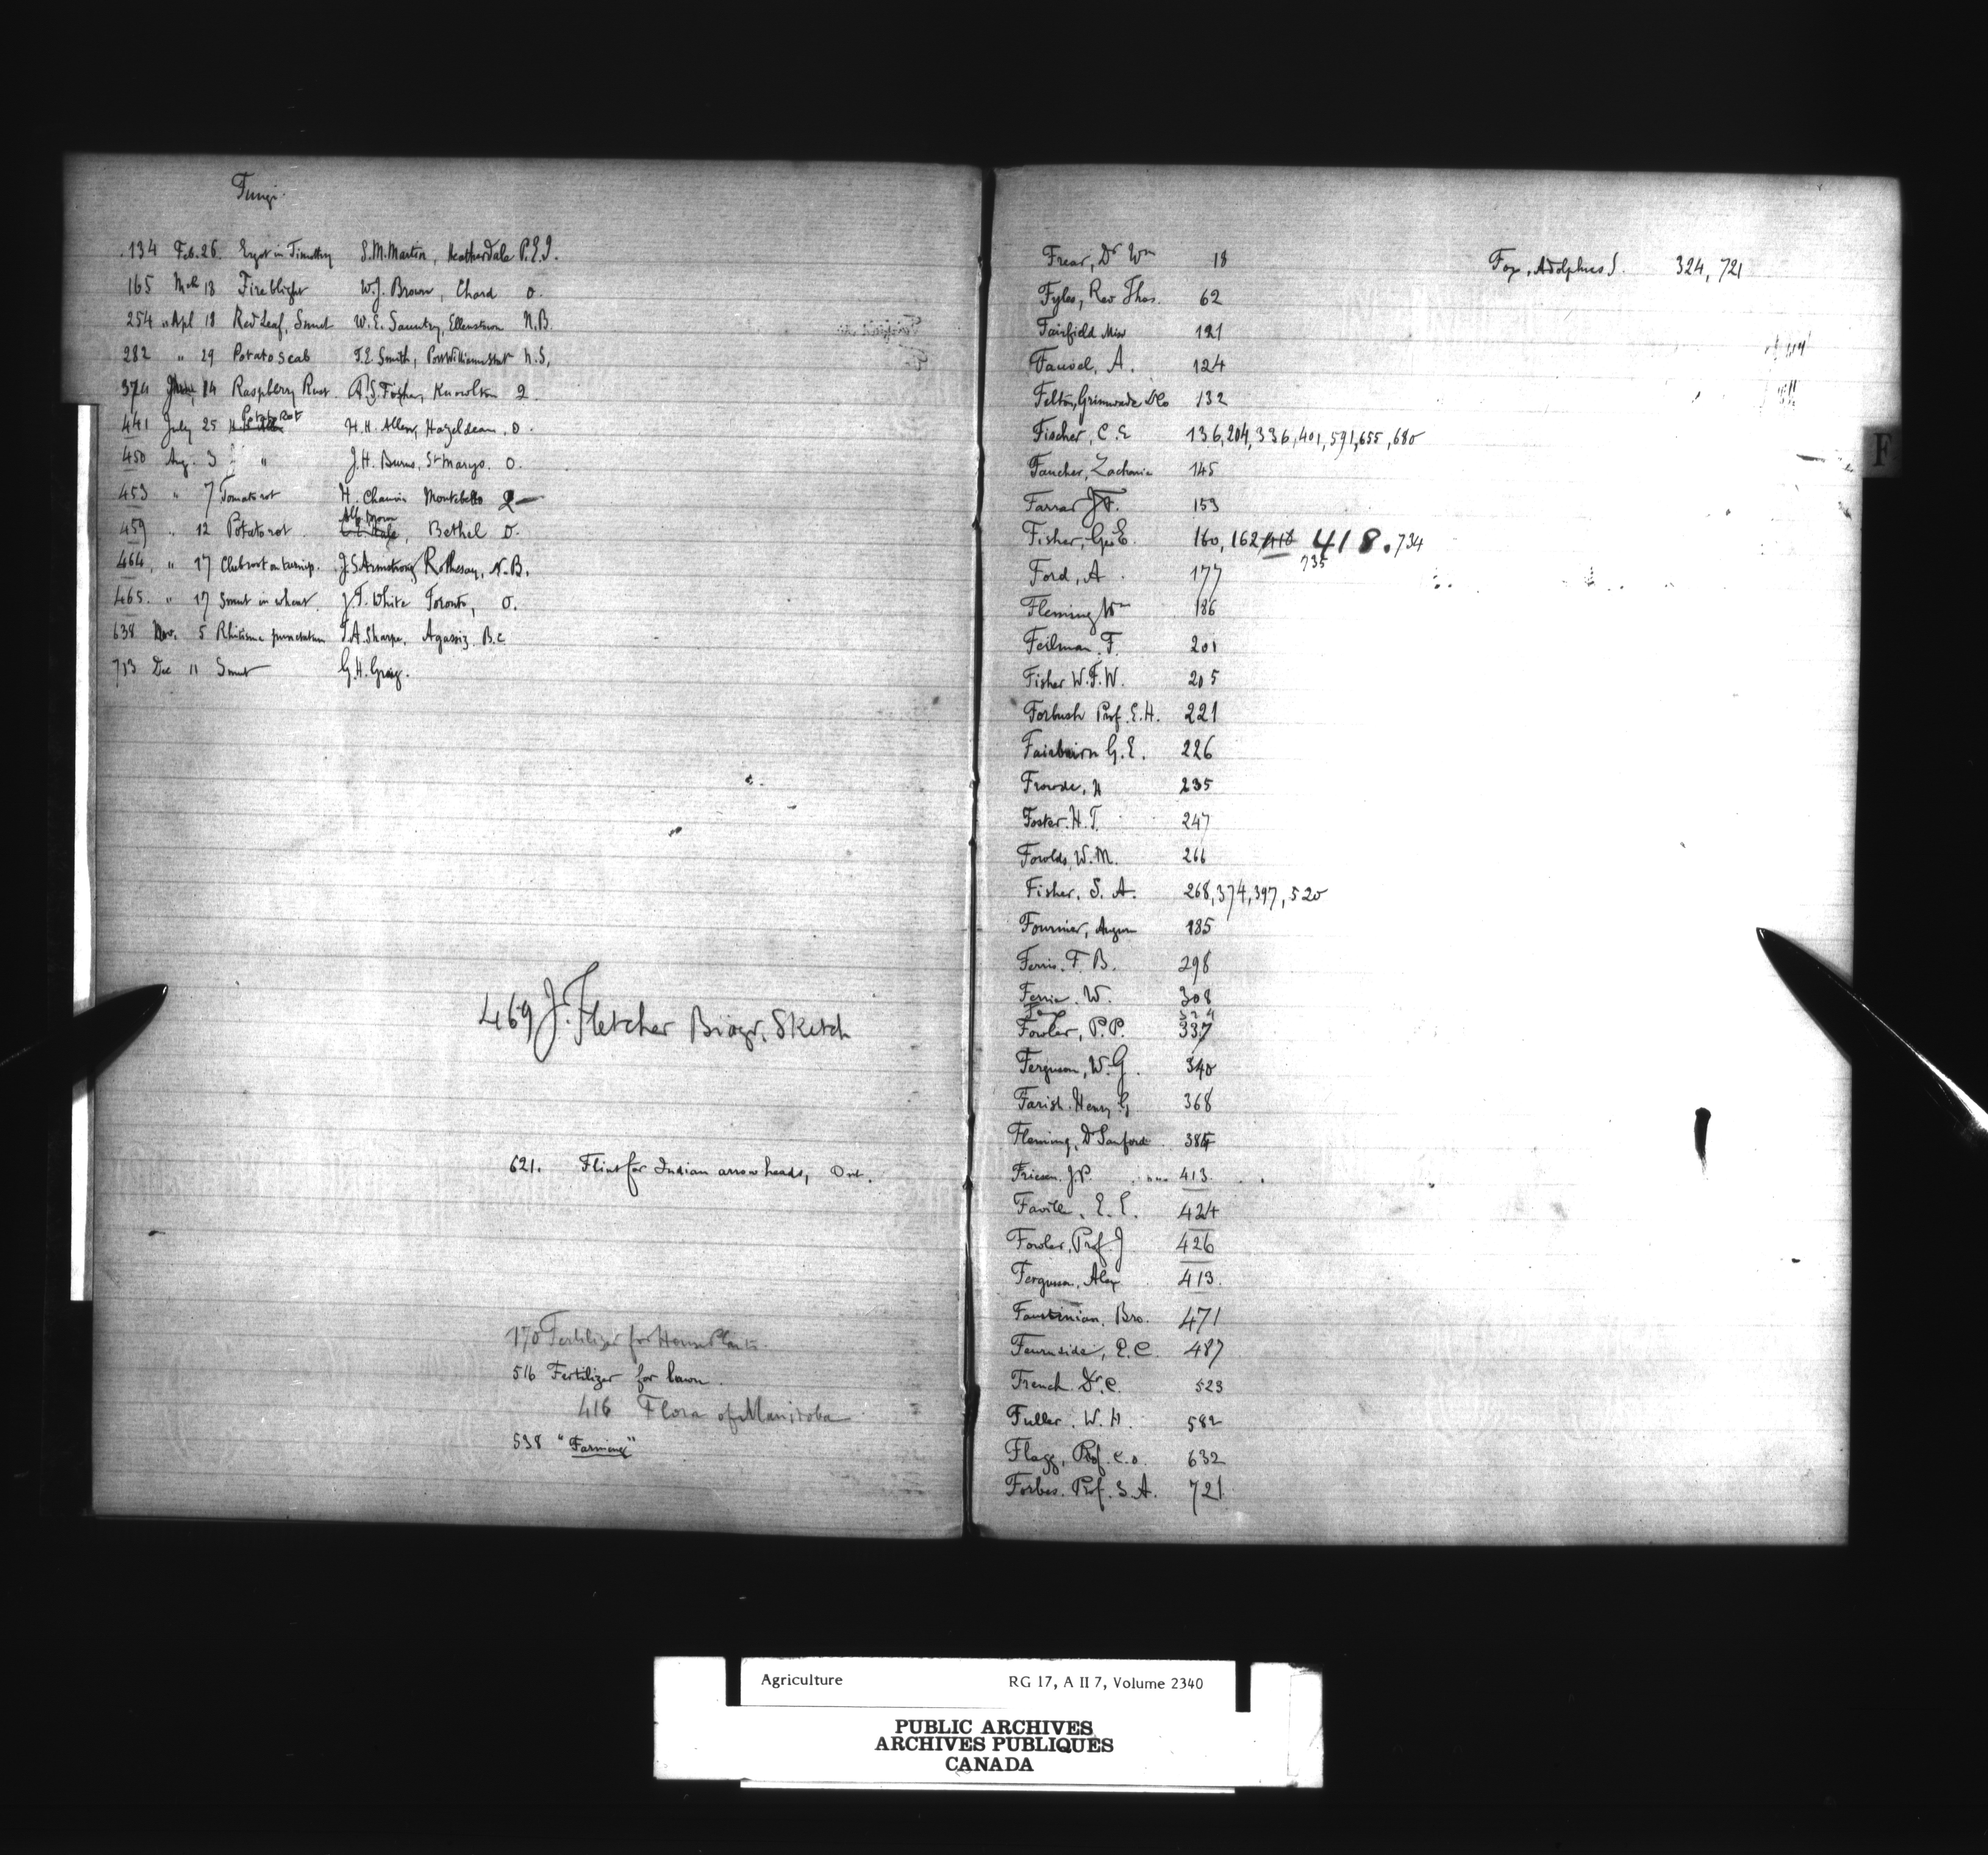 Fungi.
134 Feb. 26. Ergot in Timothy S. M. Martin, Heatherdale P.E.I.
165 Mch 18 Fireblight W. J. Brown, Chard O.
254 " Apl 18 Red Leaf, Smut W. E. Ellenstown N.B.
282 " 29 Potato scab T. E. Smith, Port Williams N.S.
374 14 Raspberry Rust Fisher, Knowlton Q.
441 July 25 Potato Rot H. H. Allen, Hazeldean, O.
450 Aug. 3 " J. H. Burns, St Marys. O.
453 " 7 Tomato rot H. Montebello Q
459 " 12 Potato rot Bethel O.
464, " 17 Clubroot on turnips. J. S. Armstrong Rothesay, N.B.
465. " 17 Smut in wheat. J. T. White Toronto, O.
638 Nov. 5 Rhitisma punctatum T. A. Sharpe, Agassiz. B.C
713 Dec 11 Smut G. H. Greig.
469 J. Fletcher Biogr. Sketch
621. Flint for Indian arrow heads, Ont.
170 Fertilizer for House Plants.
516 Fertilizer for lawn.
416 Flora of Manitoba
538 "Farming"
Frear, Dr Wm 18
Fox, Adolphus J. 324, 721
Fyles, Rev Thos. 62
Fairfield Miss 121
Fauvel, A. 124
Felton, Grimwade & Co 132
Fischer, C. E 136, 204, 336, 401, 591, 655, 680
Faucher, Zacharie 145
Farrar J. F. 153
Fisher, Geo E. 160, 162, 418. 734
735
Ford, A. 177
Fleming Wm 186
Feilman. F. 201
Fisher W. F. W. 205
Forbush Prof. E. H. 221
Fairbairn G. E. 226
Frowde, H 235
Foster. H. T. 247
Fowlds, W. M. 266
Fisher, S. A. 268, 374, 397, 520
Fournier, 285
Ferris. F. B. 298
Ferrie. W. 308
Fox 324
Fowler, P. P. 337
Ferguson, W. G. 340
Farish. Henry G 368
Fleming, Dr Sanford 384
Friesen. J. P. 413.
Faville, E. E. 424
Fowler, Prof. J 426
Ferguson. Alex 413.
Faustinian. Bro. 471
Fearnside, P. C. 487
French Dr. C. 523
Fuller. W. H. 582
Flagg, Prof. C. O. 632
Forbes. Prof. S. A. 721
F
Agriculture RG 17, A II 7, Volume 2340
PUBLIC ARCHIVES
ARCHIVES PUBLIQUES
CANADA